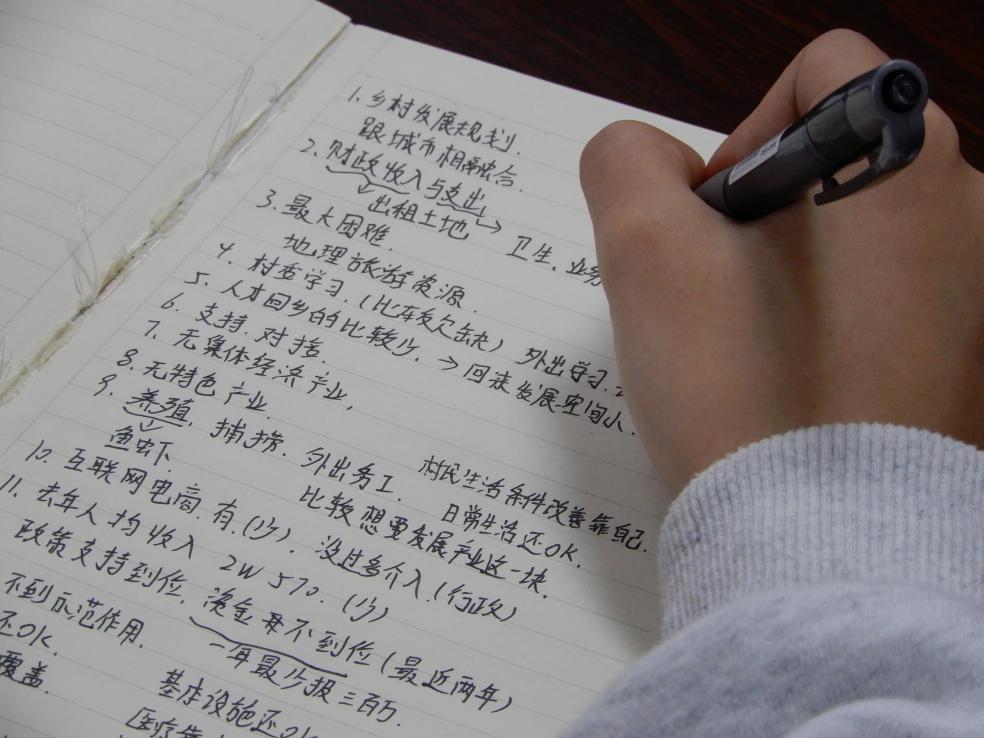 1. 乡村发展规划.
跟城市相融合.
2. 财政收入与支出
出租土地 → 卫生、业务
3. 最大困难.
地理旅游资源
4. 村委学习. (比较欠缺) 外出学习.
5. 人才回乡的比较少. → 回来发展空间小.
6. 支持. 对接.
7. 无集体经济产业,
8. 无特色产业.
9. 养殖, 捕捞. 外出务工. 村民生活条件改善靠自己.
鱼虾 比较想要发展产业这一块. 日常生活还OK.
10. 互联网电商. 有. (少). 没过多介入. (行政)
11. 去年人均收入 2W570. (少)
政策支持到位. 资金 不到位 (最近两年)
一年最少报三百万.
不到示范作用.
还OK.
基本设施还OK
覆盖.
医疗